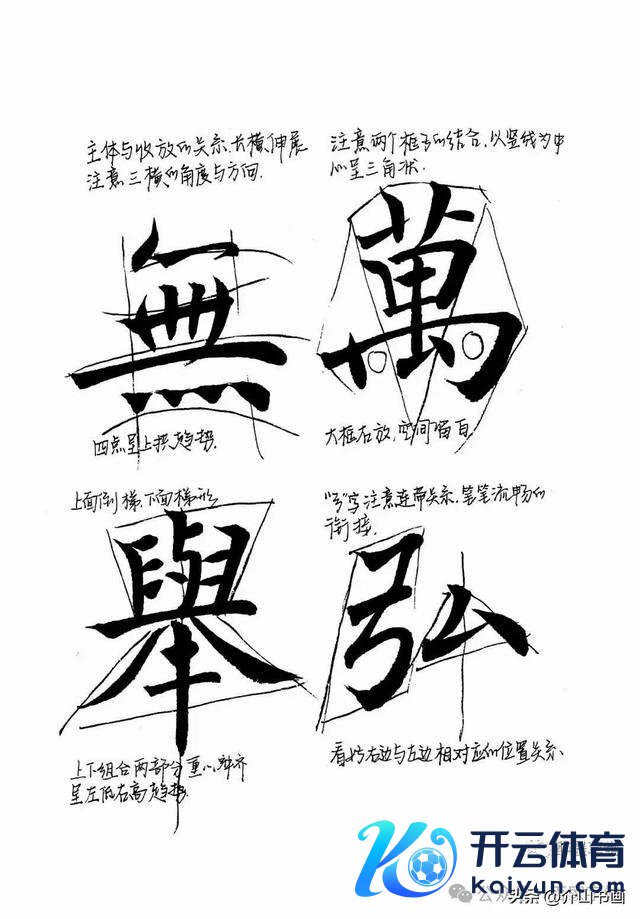 主体与收放的关系.长横伸展
注意三横的角度与方向.
無
四点呈上拱趋势.
注意两个框子的结合,以竖线为中
心呈三角状.
萬
大框右放,空间留白.
上面倒梯.下面梯形
舉
上下组合两部分重心对齐
呈左低右高趋势.
"弓"写注意连带关系.笔笔流畅的
衔接.
弘
看好右边与左边相对应的位置关系.
开云体育
kaiyun.com
头条@介山书画